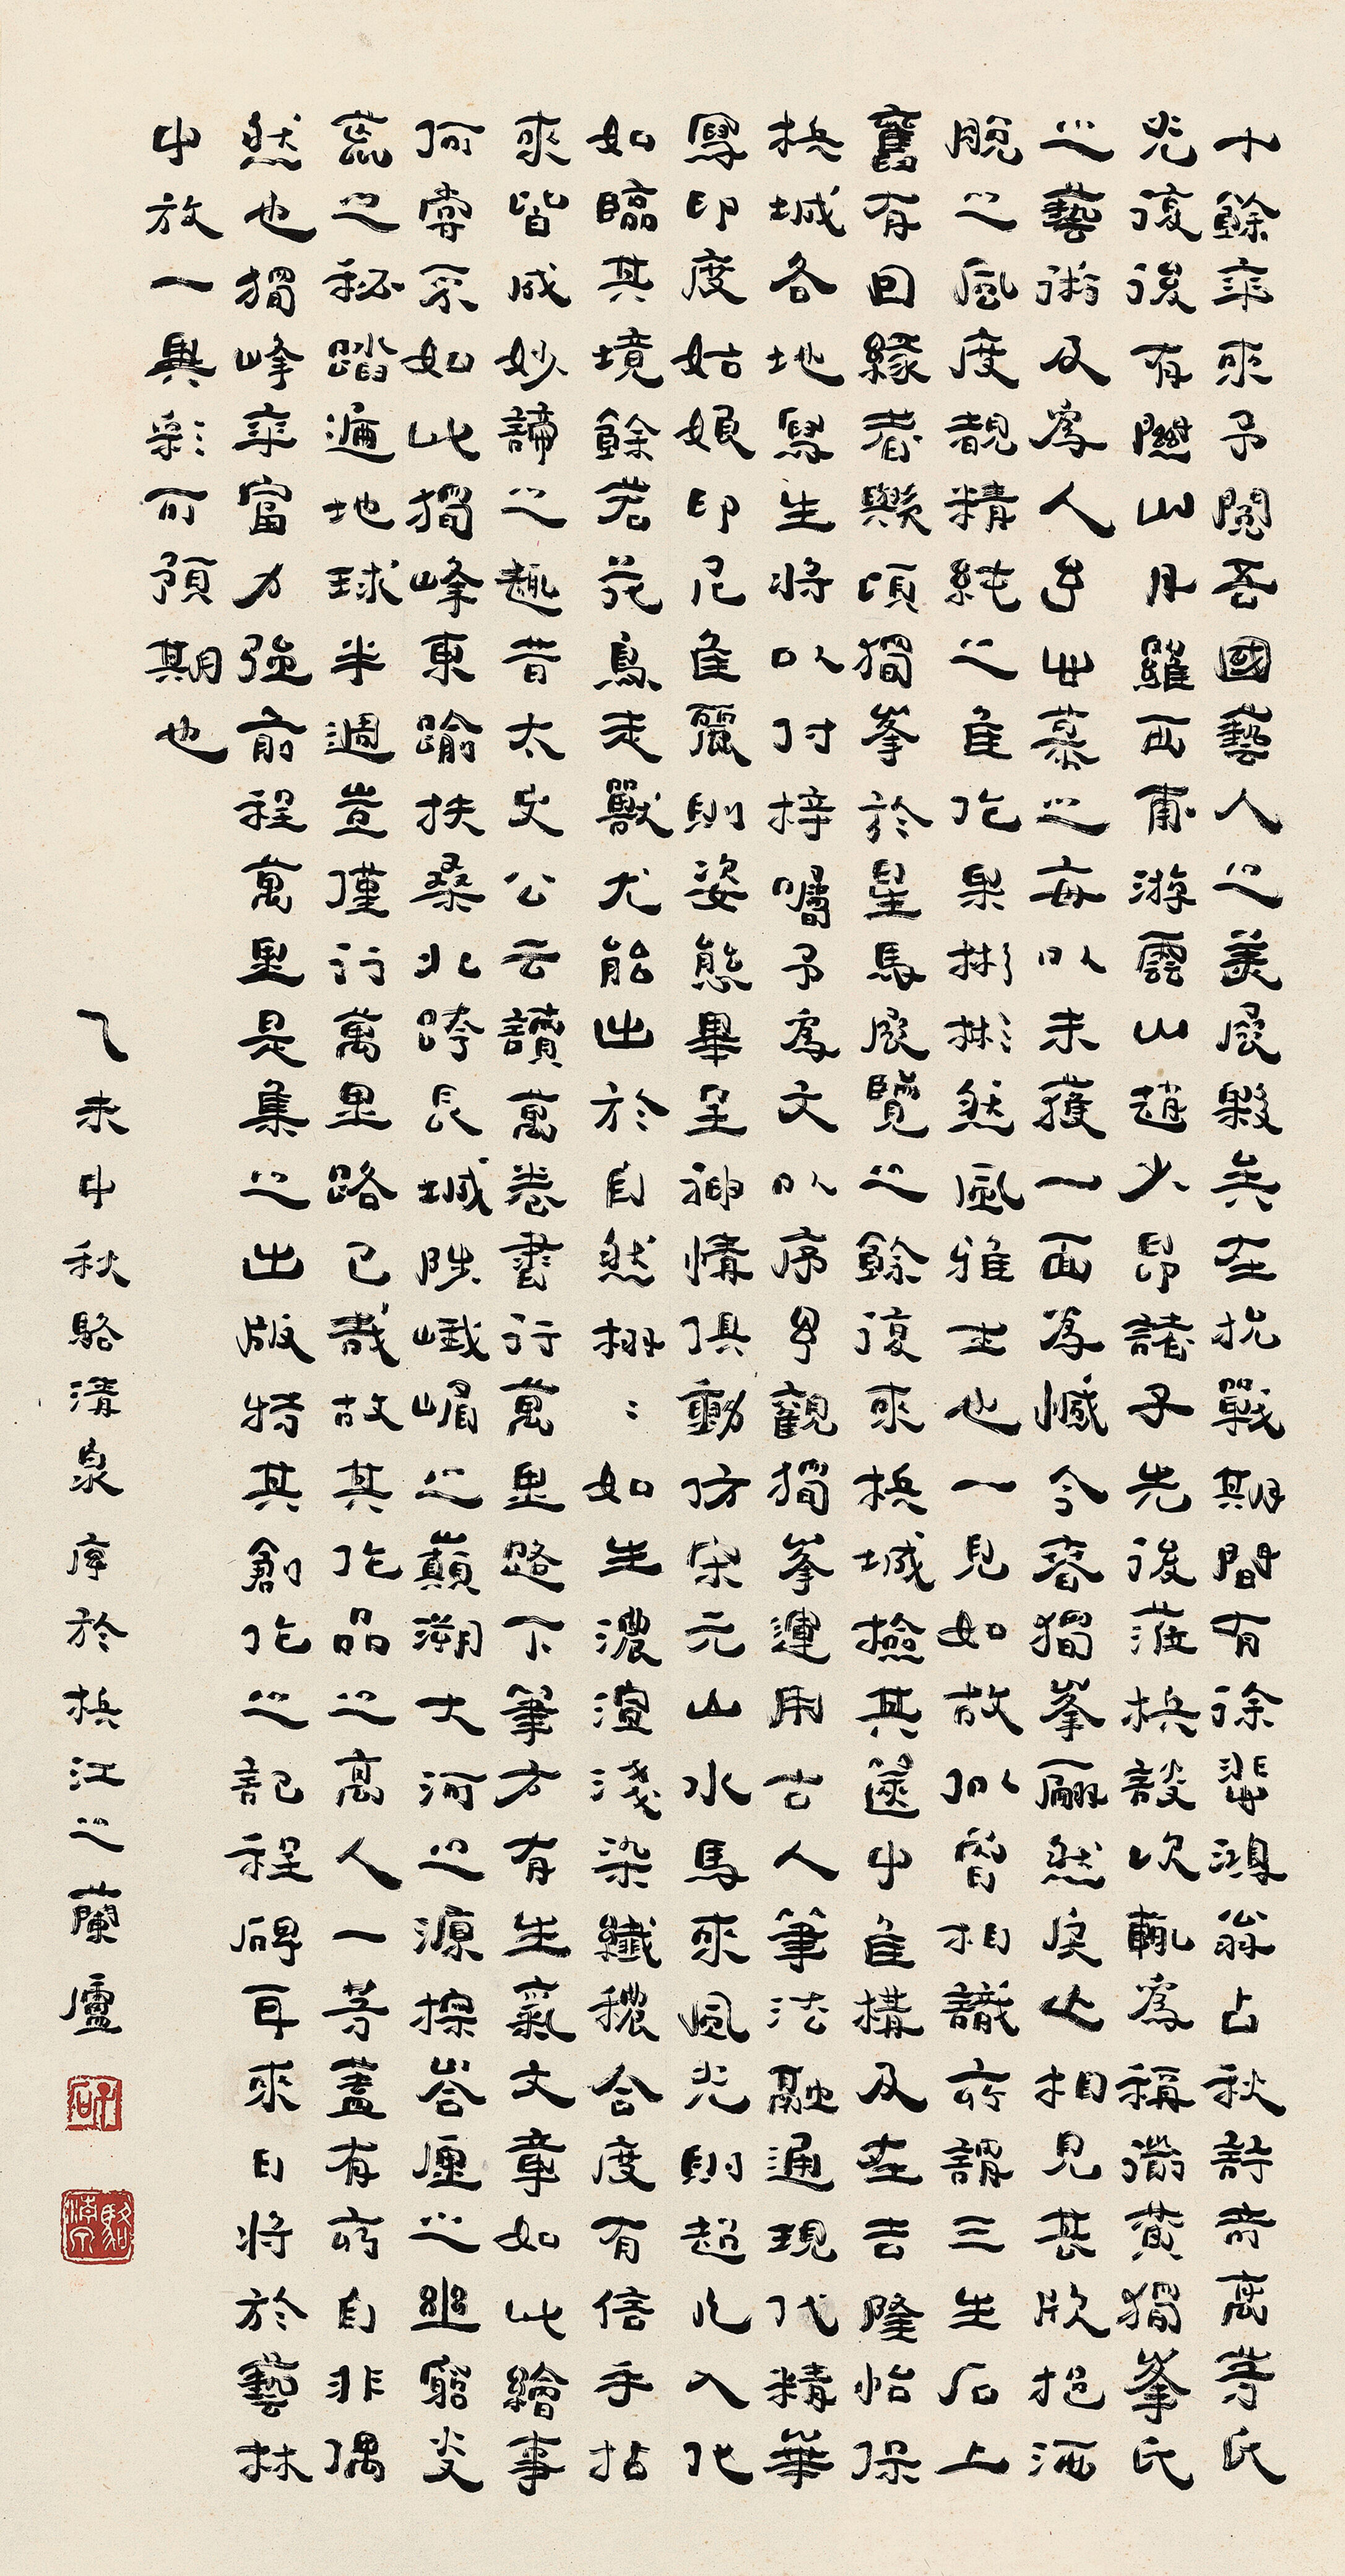 十餘年來予閱吾國藝人之美展夥矣在抗戰期間有徐悲鴻翁占秋許奇高等氏
光復後有關山月羅西甫游雲山趙少昂諸子先後蒞檳談次輒為稱道黃獨峯氏
之藝術及為人予心慕之每以未獲一面為憾今春獨峯翩然戾止相見甚歡挹洒
脫之風度覩精純之佳作果彬彬然風雅士也一見如故似曾相識所謂三生石上
舊有因緣者歟頃獨峯於星馬展覽之餘復來檳城撿其篋中佳構及在吉隆怡保
檳城各地寫生將以付梓囑予為文以序予觀獨峯運用古人筆法融通現代精華
寫印度姑娘印尼佳麗則姿態畢呈神情俱動仿宋元山水馬來風光則超凡入化
如臨其境餘若花鳥走獸尤能出於自然栩〻如生濃渲淺染纖穠合度有信手拈
來皆成妙諦之趣昔太史公云讀萬卷書行萬里路下筆方有生氣文章如此繪事
何嘗不如此獨峰東踰扶桑北跨長城陟峨嵋之巔溯大河之源探岩崖之幽窮炎
荒之秘踏遍地球半週豈僅行萬里路已哉故其作品之高人一等蓋有所自非偶
然也獨峰年富力強前程萬里是集之出版特其創作之記程碑耳來日將於藝林
中放一異彩可預期也
乙未中秋駱清泉序於檳江之蘭廬